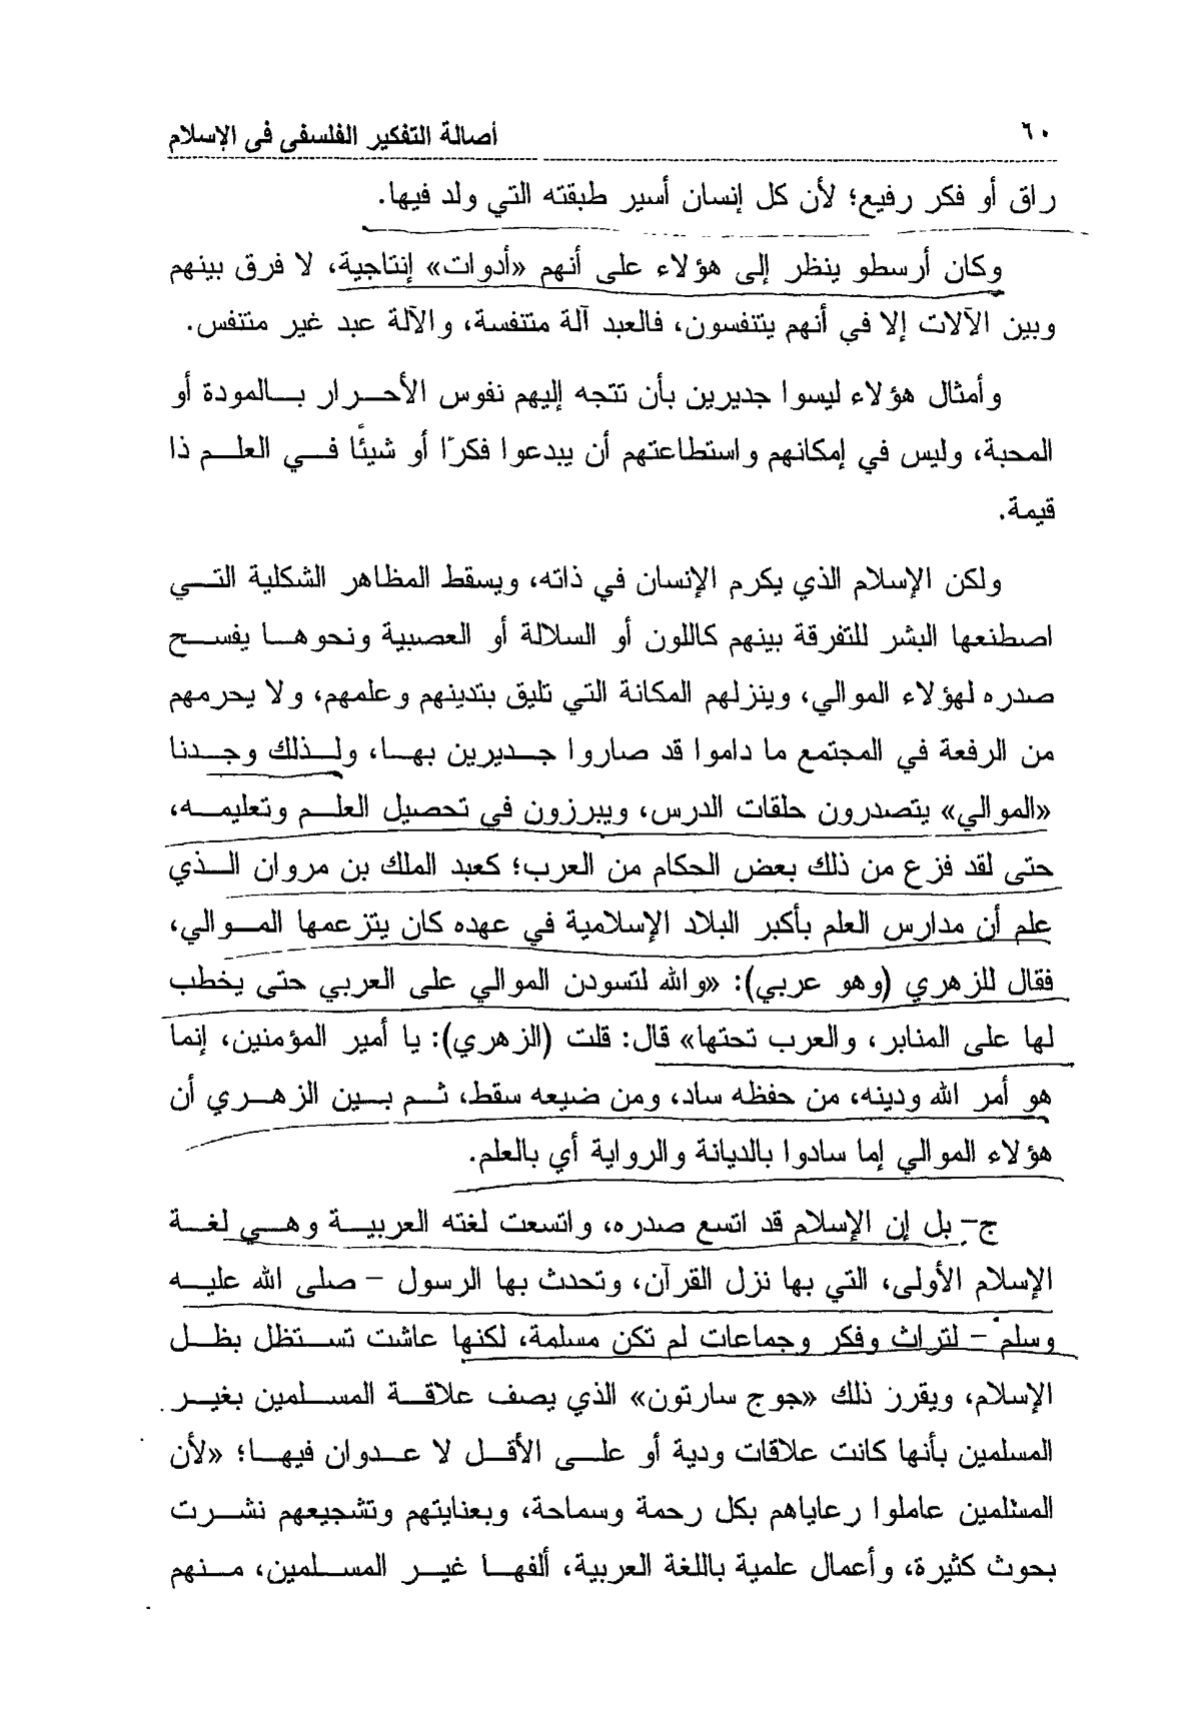 ٦٠
أصالة التفكير الفلسفى فى الإسلام
راق أو فكر رفيع؛ لأن كل إنسان أسير طبقته التي ولد فيها.
وكان أرسطو ينظر إلى هؤلاء على أنهم «أدوات» إنتاجية، لا فرق بينهم
وبين الآلات إلا في أنهم يتنفسون، فالعبد آلة متنفسة، والآلة عبد غير متنفس.
وأمثال هؤلاء ليسوا جديرين بأن تتجه إليهم نفوس الأحرار بالمودة أو
المحبة، وليس في إمكانهم واستطاعتهم أن يبدعوا فكرًا أو شيئًا في العلم ذا
قيمة.
ولكن الإسلام الذي يكرم الإنسان في ذاته، ويسقط المظاهر الشكلية التي
اصطنعها البشر للتفرقة بينهم كاللون أو السلالة أو العصبية ونحوها يفسح
صدره لهؤلاء الموالي، وينزلهم المكانة التي تليق بتدينهم وعلمهم، ولا يحرمهم
من الرفعة في المجتمع ما داموا قد صاروا جديرين بها، ولذلك وجدنا
«الموالي» يتصدرون حلقات الدرس، ويبرزون في تحصيل العلم وتعليمه،
حتى لقد فزع من ذلك بعض الحكام من العرب؛ كعبد الملك بن مروان الذي
علم أن مدارس العلم بأكبر البلاد الإسلامية في عهده كان يتزعمها الموالي،
فقال للزهري (وهو عربي): «والله لتسودن الموالي على العربي حتى يخطب
لها على المنابر، والعرب تحتها» قال: قلت (الزهري): يا أمير المؤمنين، إنما
هو أمر الله ودينه، من حفظه ساد، ومن ضيعه سقط، ثم بين الزهري أن
هؤلاء الموالي إما سادوا بالديانة والرواية أي بالعلم.
ج- بل إن الإسلام قد اتسع صدره، واتسعت لغته العربية وهي لغة
الإسلام الأولى، التي بها نزل القرآن، وتحدث بها الرسول – صلى الله عليه
وسلم – لتراث وفكر وجماعات لم تكن مسلمة، لكنها عاشت تستظل بظل
الإسلام، ويقرر ذلك «جوج سارتون» الذي يصف علاقة المسلمين بغير
المسلمين بأنها كانت علاقات ودية أو على الأقل لا عدوان فيها؛ «لأن
المسلمين عاملوا رعاياهم بكل رحمة وسماحة، وبعنايتهم وتشجيعهم نشرت
بحوث كثيرة، وأعمال علمية باللغة العربية، ألفها غير المسلمين، منهم